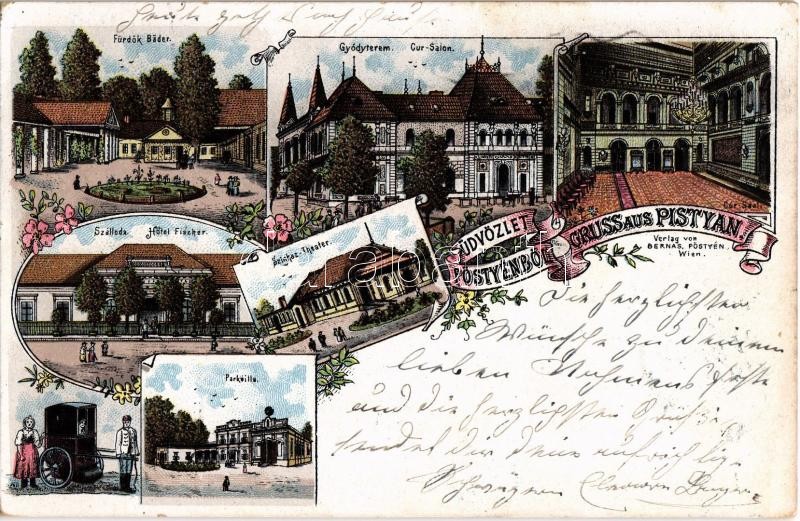 Heute geht
Fürdők Bäder.
Gyódyterem. Cur-Salon.
Cur-Saal.
Szálloda. Hôtel Fischer.
Szinház-Theater.
ÜDVÖZLET PÖSTYÉNBŐL
GRUSS AUS PISTYAN.
Verlag von
BERNAS, PÖSTYÉN.
Wien.
Parkvilla.
Die herzlichsten
Wünsche zu deinem
lieben Nahmensfeste
und die herzlichsten Grüße
sendet dir deine aufrichtige
Schwägerin